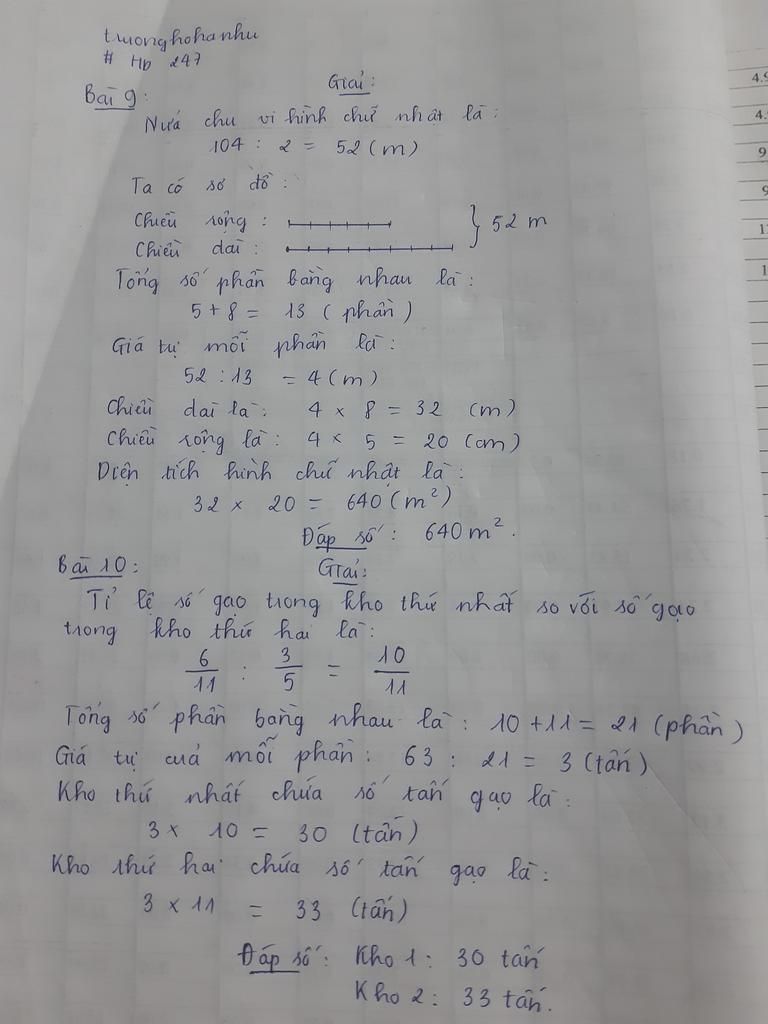 truonghohanhu
# Hp 247
Giải:
Bài 9:
Nửa chu vi hình chữ nhật là:
104 : 2 = 52 (m)
Ta có sơ đồ:
Chiều rộng :
} 52 m
Chiều dài :
Tổng số phần bằng nhau là:
5 + 8 = 13 ( phần )
Giá tự mỗi phần là:
52 : 13 = 4 (m)
Chiều dài là: 4 × 8 = 32 (m)
Chiều rộng là: 4 × 5 = 20 (cm)
Diện tích hình chữ nhật là:
32 × 20 = 640 (m²)
Đáp số: 640 m².
Bài 10:
Giải:
Tỉ lệ số gạo trong kho thứ nhất so với số gạo
trong kho thứ hai là:
6/11 : 3/5 = 10/11
Tổng số phần bằng nhau là: 10 + 11 = 21 (phần)
Giá tự của mỗi phần: 63 : 21 = 3 (tấn)
Kho thứ nhất chứa số tấn gạo là:
3 × 10 = 30 (tấn)
Kho thứ hai chứa số tấn gạo là:
3 × 11 = 33 (tấn)
Đáp số: Kho 1: 30 tấn
Kho 2: 33 tấn.